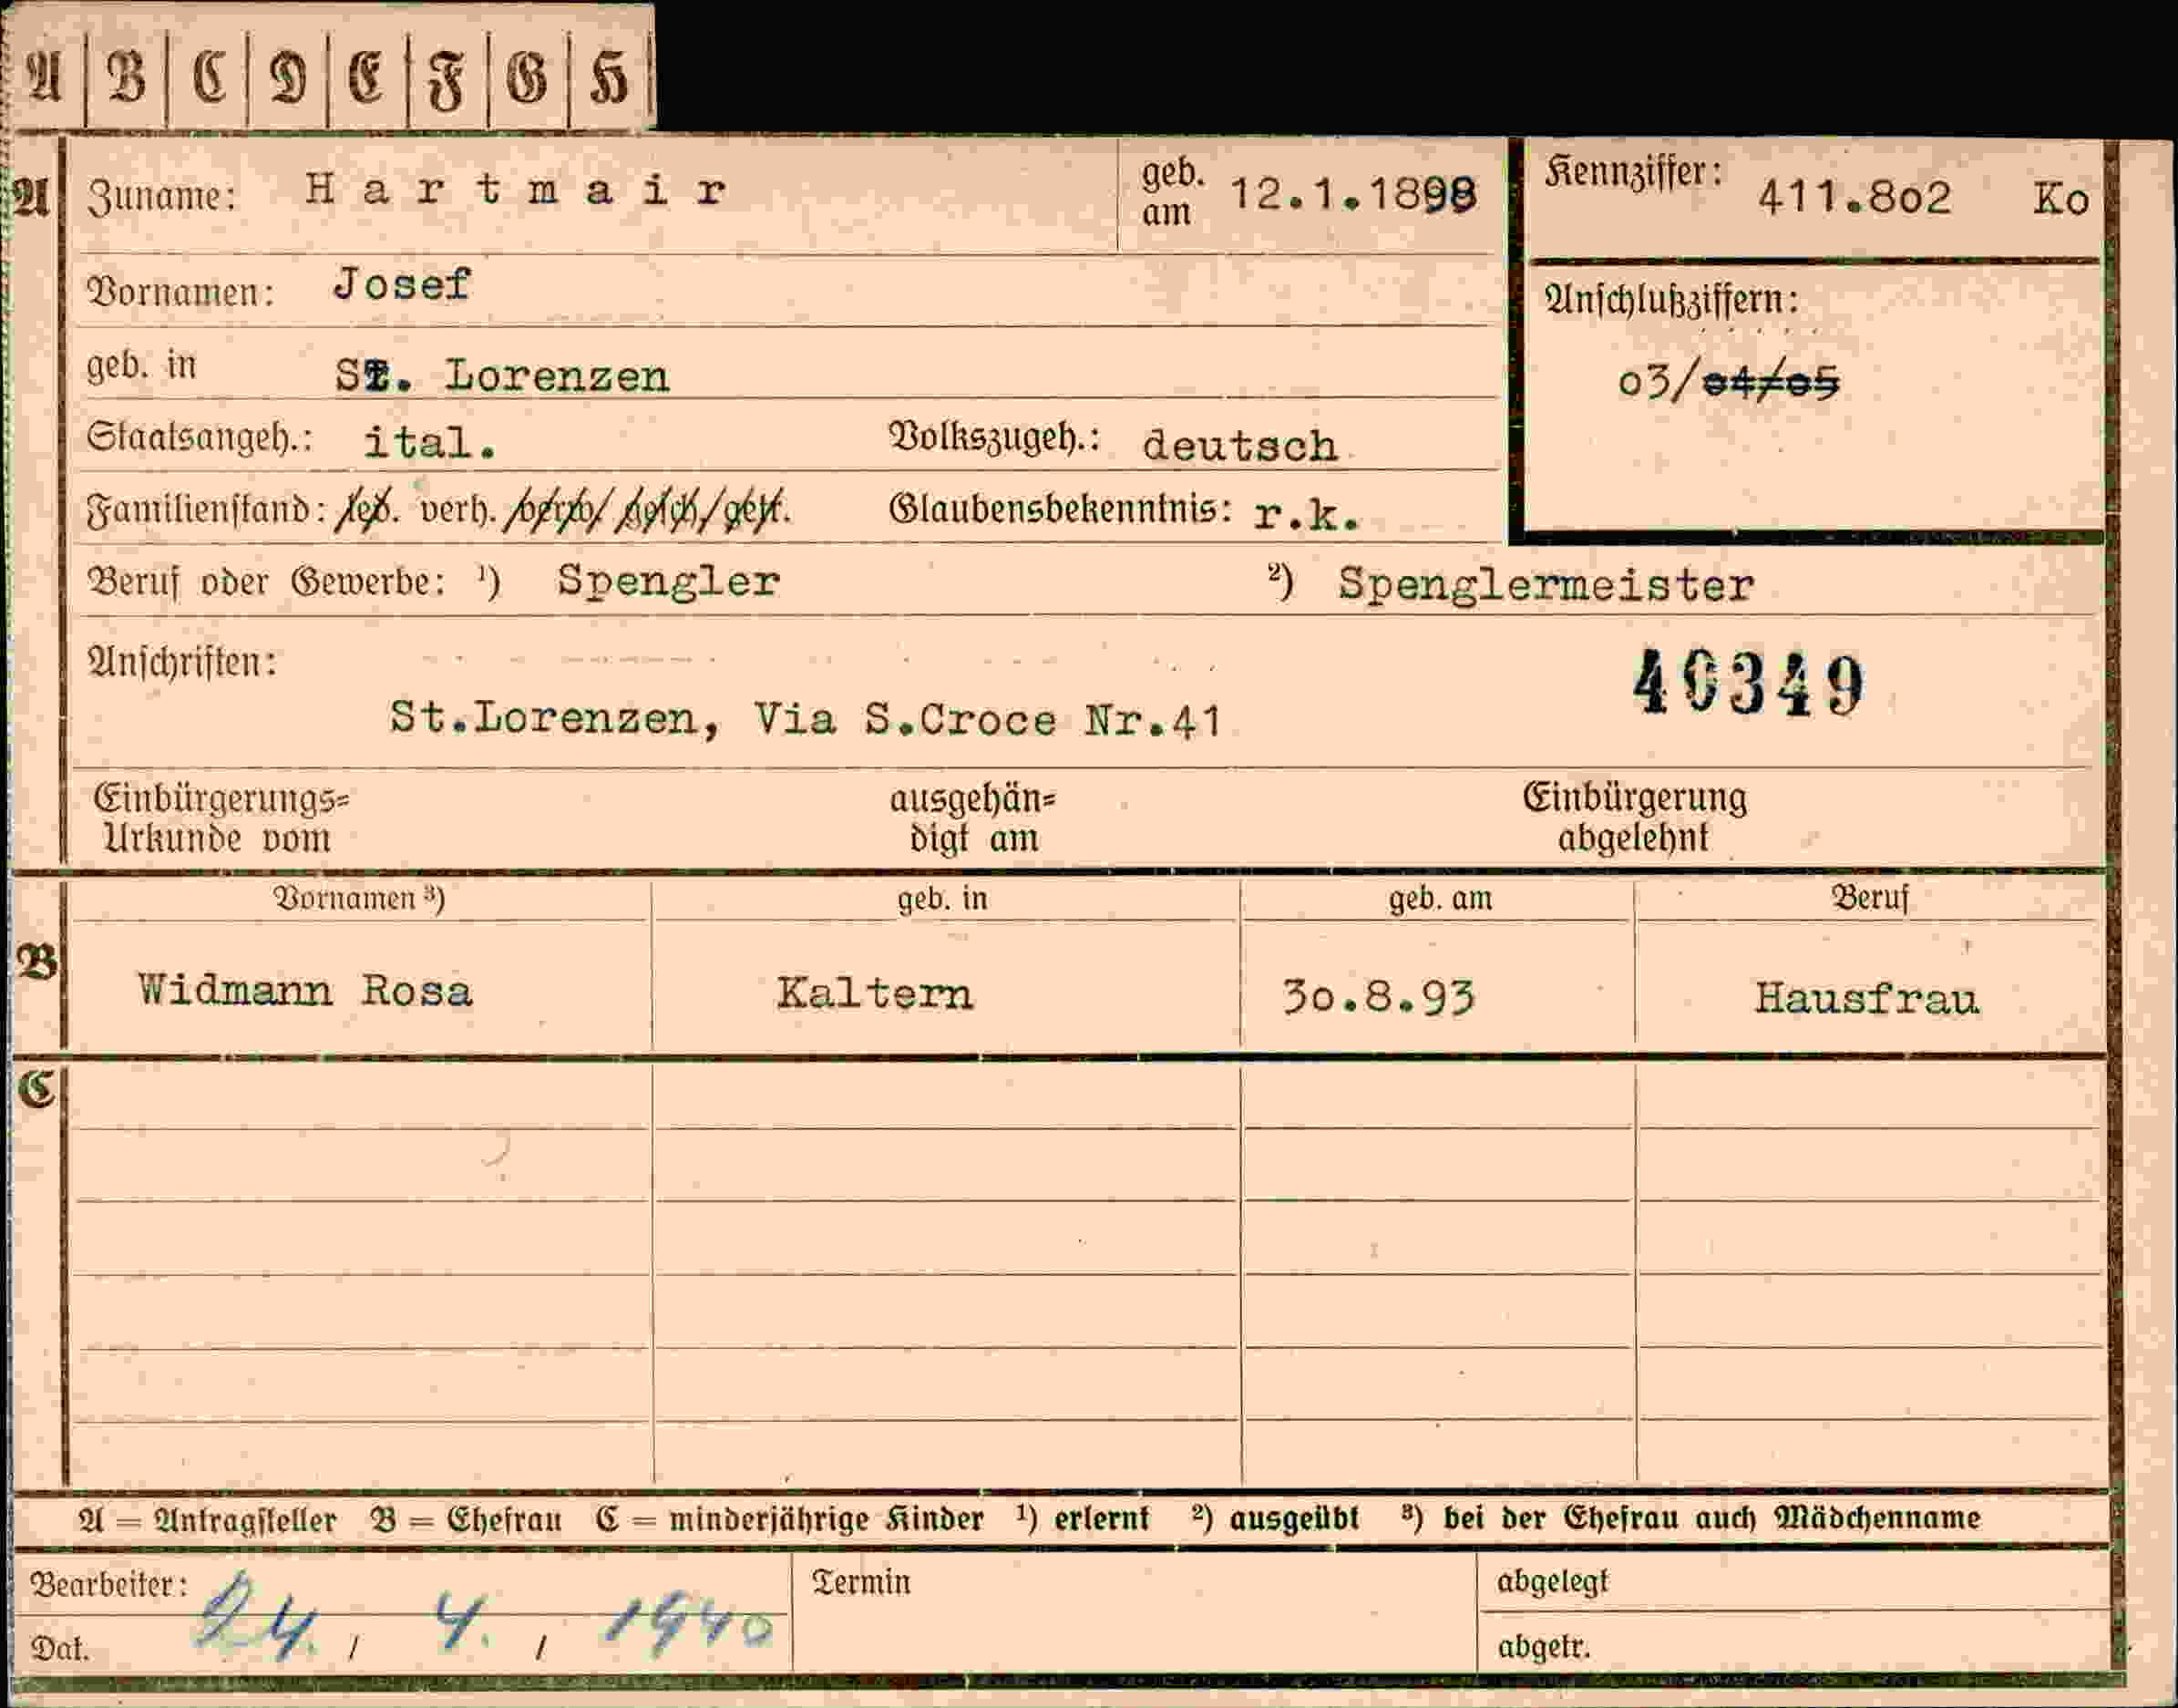 A | B | C | D | E | F | G | H
A Zuname: Hartmair geb. am 12.1.1898 Kennziffer: 411.802 Ko
Vornamen: Josef
Anschlußziffern:
geb. in St. Lorenzen
03/04/05
Staatsangeh.: ital. Volkszugeh.: deutsch
Familienstand: led. verh. verw. gesch. gest. Glaubensbekenntnis: r.k.
Beruf oder Gewerbe: ¹) Spengler ²) Spenglermeister
Anschriften:
40349
St.Lorenzen, Via S.Croce Nr.41
Einbürgerungs= ausgehän= Einbürgerung
Urkunde vom digt am abgelehnt
Vornamen ³) geb. in geb. am Beruf
B Widmann Rosa Kaltern 30.8.93 Hausfrau
C
A = Antragsteller B = Ehefrau C = minderjährige Kinder ¹) erlernt ²) ausgeübt ³) bei der Ehefrau auch Mädchenname
Bearbeiter: Termin abgelegt
Dat. 24. / 4. / 1940 abgetr.